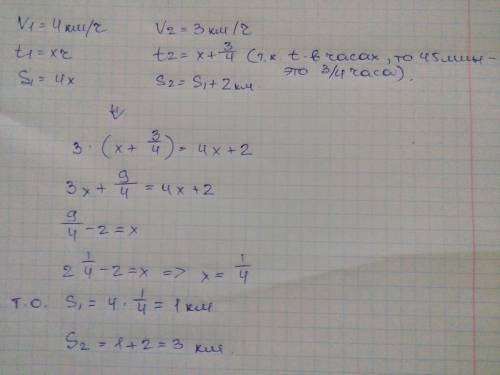 V₁ = 4 км/ч V₂ = 3 км/ч
t₁ = x ч t₂ = x + 3/4 (т.к t в часах, то 45 мин -
S₁ = 4x S₂ = S₁ + 2 км это 3/4 часа).
3 · (x + 3/4) = 4x + 2
3x + 9/4 = 4x + 2
9/4 - 2 = x
2 1/4 - 2 = x => x = 1/4
т.о. S₁ = 4 · 1/4 = 1 км
S₂ = 1 + 2 = 3 км.